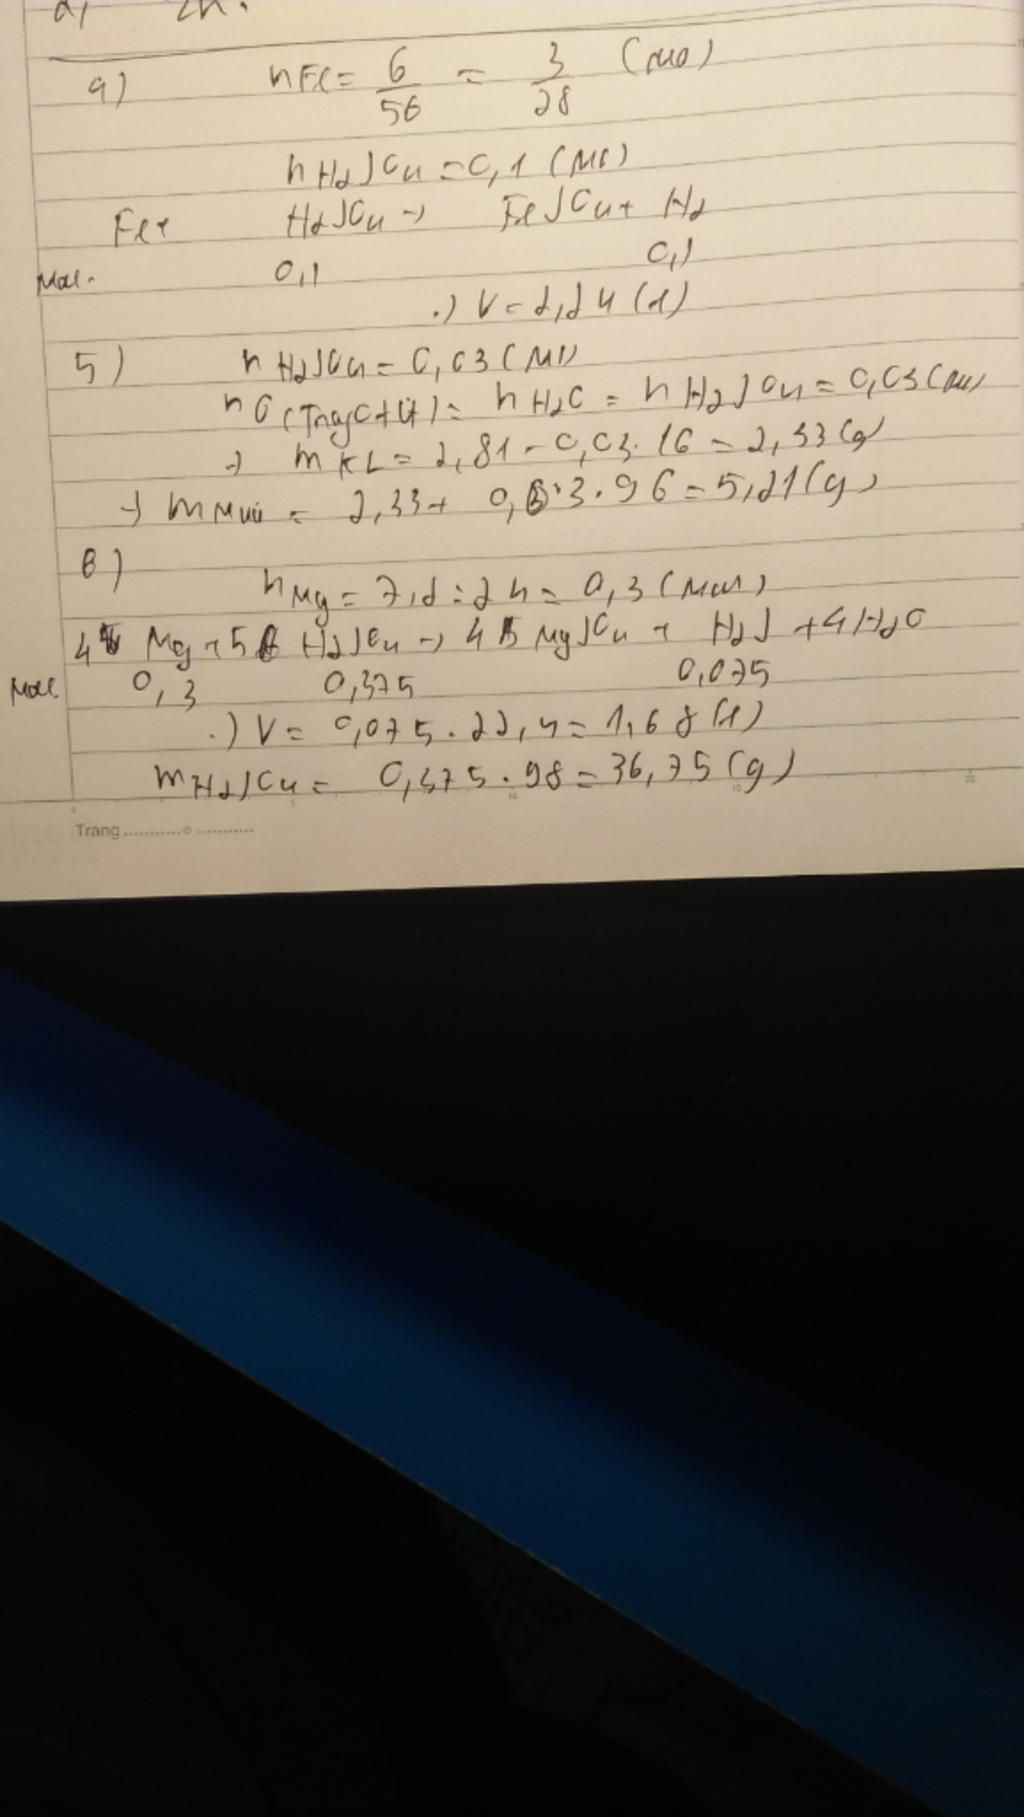 a) nFe = 6/56 = 3/28 (mol)
nH2SO4 = 0,1 (mol)
Fe + H2SO4 → FeSO4 + H2
Mol. 0,1 0,1
.) V = 2,24 (l)
5) nH2SO4 = 0,03 (mol)
nO (trong oxit) = nH2O = nH2SO4 = 0,03 (mol)
→ mKL = 2,81 - 0,03.16 = 2,33 (g)
→ mMuối = 2,33 + 0,03.96 = 5,21 (g)
6)
nMg = 7,2 : 24 = 0,3 (mol)
4 Mg + 5 H2SO4 → 4 MgSO4 + H2S + 4H2O
Mol. 0,3 0,375 0,075
.) V = 0,075.22,4 = 1,68 (l)
mH2SO4 = 0,375.98 = 36,75 (g)
Trang